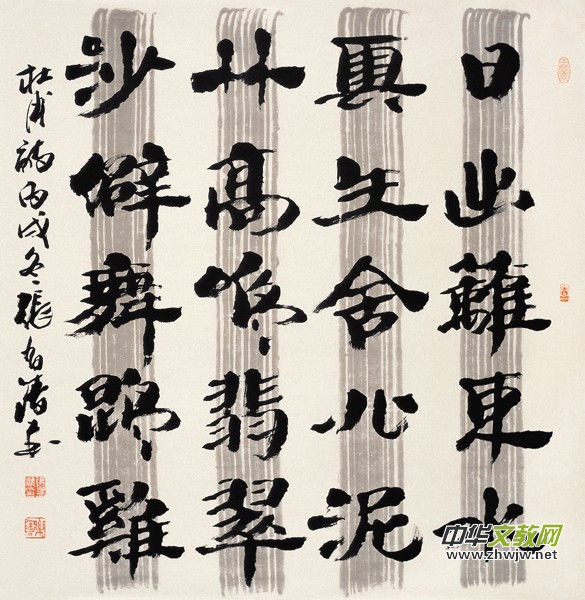 日出籬東水
雲生舍北泥
竹高鳴翡翠
沙僻舞鵾雞
杜甫詩丙戌冬張
中华文教网
www.zhwjw.net